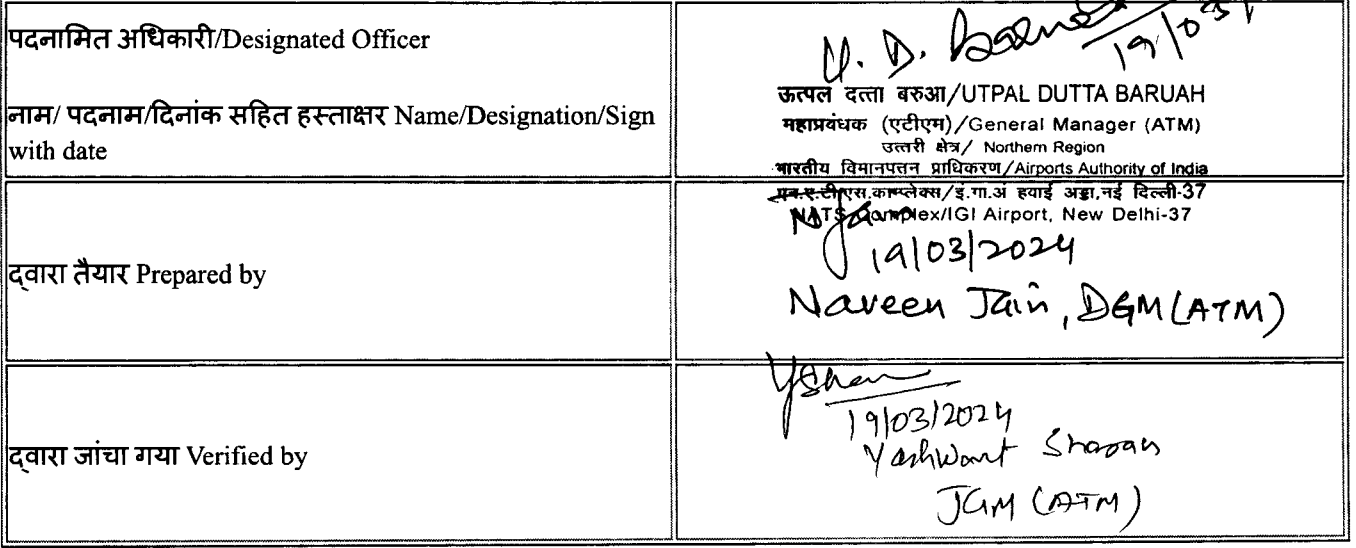 पदनामित अधिकारी/Designated Officer
नाम/ पदनाम/दिनांक सहित हस्ताक्षर Name/Designation/Sign
with date
U. D. Baruah
19/03/
ऊत्पल दत्ता बरुआ/UTPAL DUTTA BARUAH
महाप्रवंधक (एटीएम)/General Manager (ATM)
उत्तरी क्षेत्र/ Northern Region
भारतीय विमानपत्तन प्राधिकरण/Airports Authority of India
एन.ए.टी.एस.काम्प्लेक्स/इं.गा.अं हवाई अड्डा,नई दिल्ली-37
NATS Complex/IGI Airport, New Delhi-37
द्वारा तैयार Prepared by
19/03/2024
Naveen Jain, DGM(ATM)
द्वारा जांचा गया Verified by
19/03/2024
Yashwant Sharan
JGM (ATM)